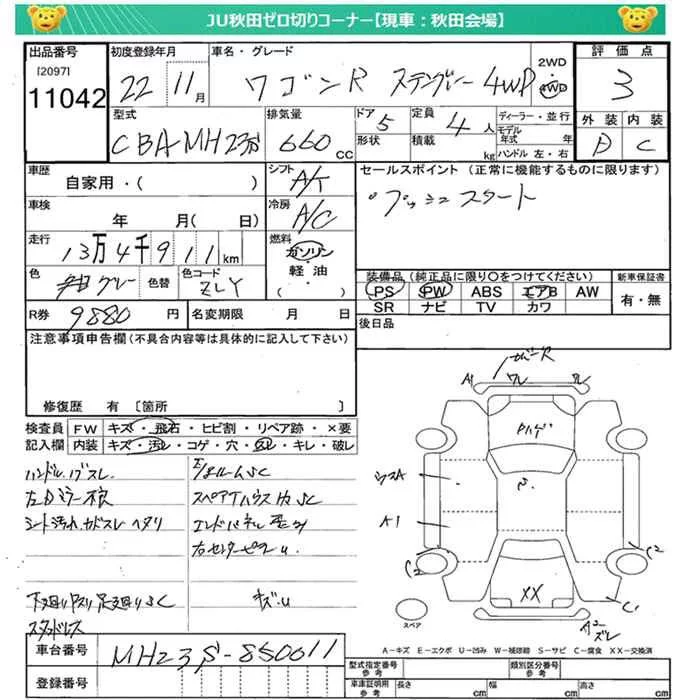 JU秋田ゼロ切りコーナー【現車：秋田会場】
出品番号 初度登録年月 車名・グレード 2WD 4WD 評価点
[2097] 11042 22 11月 ワゴンR スティングレー 4WD 3
型式 排気量 ドア 定員 ディーラー・並行 外装 内装
CBA-MH23S 660 CC 5 4人 モデル年式 年 D C
形状 積載 kg ハンドル 左・右
車歴 シフト セールスポイント (正常に機能するものに限ります)
自家用・( ) A/T プッシュスタート
車検 冷房
年 月(日) A/C
走行 燃料
13万4千911km ガソリン・軽油・( )
色 色替 色コード 装備品 (純正品に限り○をつけてください) 新車保証書
グレー ZLY PS PW ABS エアB AW 有・無
SR ナビ TV カワ
R券 9880円 名変期限 月 日 後日品
注意事項申告欄(不具合内容等は具体的に記入して下さい)
修復歴 有 [箇所 ]
検査員 FW キズ・飛石・ヒビ割・リペア跡・×要
記入欄 内装 キズ・汚レ・コゲ・穴・スレ・キレ・破レ
ハンドル. スレ
左Dミラー不良 スペアタイヤハウス SC
シート汚れ. カドスレ ヘタリ エンドパネル
右センターピラーU
下廻りサビ 足廻りSC キズ.U
スタッドレス
A1 ワレ
ハゲ
A1
C2 C2
XX C1
スペア
A－キズ E－エクボ U－凹み W－補修跡 S－サビ C－腐食 XX－交換済
車台番号 MH23S-850011
登録番号
型式指定番号 参考 類別区分番号
車庫証明用 参考 長さ cm 幅 cm 高さ cm